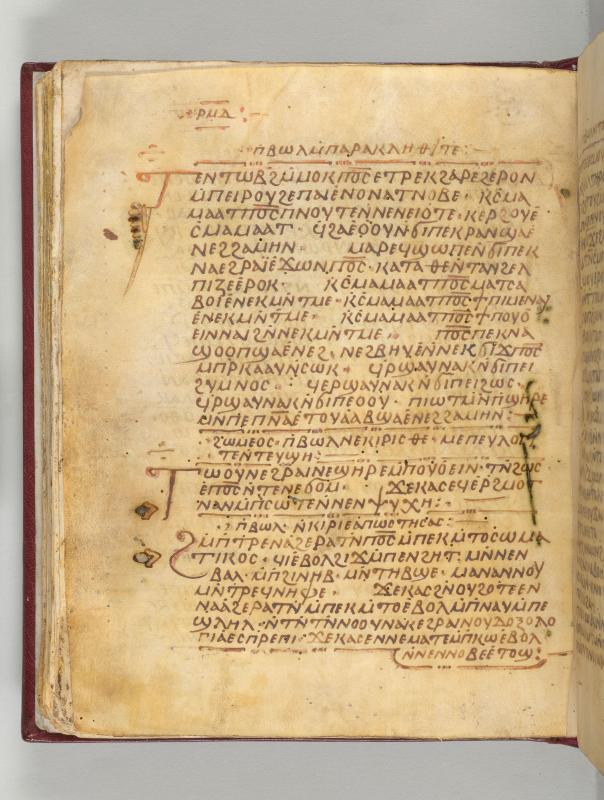 ⲣⲙⲇ
ⲡⲃⲱⲗ ⲙⲡⲁⲣⲁⲕⲗⲏⲑⲓⲧⲉ
ⲧⲉⲛⲧⲱⲃϩ ⲙⲙⲟⲕ ⲡⲟ̅ⲥ̅ ⲉⲧⲣⲉⲕϩⲁⲣⲉϩ ⲉⲣⲟⲛ
ⲙⲡⲉⲓⲣⲟⲩϩⲉ ⲡⲁⲓ ⲉⲛⲟ ⲛⲁⲧⲛⲟⲃⲉ · ⲕ̅ⲥ̅ⲙⲁ
ⲙⲁⲁⲧ ⲡⲟ̅ⲥ̅ ⲡⲛⲟⲩⲧⲉ ⲛⲛⲉⲛⲉⲓⲟⲧⲉ · ⲕⲉⲣϩⲟⲩⲉ
ⲥⲙⲁⲙⲁⲁⲧ · ϥϩⲁⲉⲟⲟⲩ ⲛϭⲓ ⲡⲉⲕⲣⲁⲛ ϣⲁⲉ
ⲛⲉϩ ϩⲁⲙⲏⲛ · ⲙⲁⲣⲉϥϣⲱⲡⲉ ⲛϭⲓ ⲡⲉⲕ
ⲛⲁ ⲉϩⲣⲁⲓ ⲉϫⲱⲛ ⲡⲟ̅ⲥ̅ · ⲕⲁⲧⲁ ⲑⲉ ⲛⲧⲁⲛϩⲉⲗ
ⲡⲓϩⲉ ⲉⲣⲟⲕ · ⲕ̅ⲥ̅ⲙⲁⲙⲁⲁⲧ ⲡⲟ̅ⲥ̅ ⲙⲁⲧⲥⲁ
ⲃⲟⲓ ⲉⲛⲉⲕⲙⲛⲧⲙⲉ · ⲕ̅ⲥ̅ⲙⲁⲙⲁⲁⲧ ⲡⲟ̅ⲥ̅ ϯ ⲡⲓⲙⲉ ⲛⲁⲓ
ⲉⲛⲉⲕⲙⲛⲧⲙⲉ · ⲕ̅ⲥ̅ⲙⲁⲙⲁⲁⲧ ⲡⲟ̅ⲥ̅ ϯ ⲡⲟⲩⲟ
ⲉⲓⲛ ⲛⲁⲓ ϩⲛⲛⲉⲕⲙⲛⲧⲙⲉ · ⲡⲟ̅ⲥ̅ ⲡⲉⲕⲛⲁ
ϣⲟⲟⲡ ϣⲁⲉⲛⲉϩ · ⲛⲉϩⲃⲏⲩⲉ ⲛⲛⲉⲕϭⲓϫ ⲡⲟ̅ⲥ̅
ⲙⲡⲣⲕⲁⲁⲩ ⲛⲥⲱⲕ · ϥⲣϣⲁⲩ ⲛⲁⲕ ⲛϭⲓ ⲡⲉⲓ
ϩⲩⲙⲛⲟⲥ · ϥⲉⲣϣⲁⲩ ⲛⲁⲕ ⲛϭⲓ ⲡⲉⲓϩⲱⲥ ·
ϥⲣϣⲁⲩ ⲛⲁⲕ ⲛϭⲓ ⲡⲉⲟⲟⲩ · ⲡⲓⲱⲧ ⲙⲛ ⲡϣⲏⲣⲉ
ⲙⲛ ⲡⲉⲡⲛⲁ ⲉⲧⲟⲩⲁⲁⲃ ϣⲁⲉⲛⲉϩ ϩⲁⲙⲏⲛ :
ϩⲱⲙⲉⲟⲥ · ⲡⲃⲱⲗ ⲛⲉⲕⲓⲣⲓⲥⲑⲉ · ⲙⲉⲡⲉⲩⲗⲟⲅ
ⲧⲉⲛⲧⲉⲩϣⲏ :
ⲧⲱⲟⲩⲛ ⲉϩⲣⲁⲓ ⲛⲉϣⲏⲣⲉ ⲙⲡⲟⲩⲟⲉⲓⲛ · ⲧⲛϩⲱⲥ
ⲉⲡⲟ̅ⲥ̅ ⲛⲧⲉⲛⲉϭⲟⲙ · ϫⲉⲕⲁⲥ ⲉϥⲉⲣϩⲙⲟⲧ
ⲛⲁⲛ ⲙⲡⲥⲱⲧⲉ ⲛⲛⲉⲛⲯⲩⲭⲏ :
ⲡⲃⲱⲗ ⲛⲕⲓⲣⲓⲉ ⲁⲡⲱⲥⲧⲏⲥⲁⲥ :
ϩⲙ ⲡⲧⲣⲉⲛⲁϩⲉⲣⲁⲧⲛ ⲡⲟ̅ⲥ̅ ⲙⲡⲉⲕⲙⲧⲟ ⲥⲱⲙⲁ
ⲧⲓⲕⲟⲥ · ϥⲓ ⲉⲃⲟⲗ ϩⲓϫⲙ ⲡⲉⲛϩⲏⲧ · ⲙⲛ ⲛⲉⲛ
ⲃⲁⲗ · ⲙⲡϩⲓⲛⲏⲃ · ⲙⲛ ⲧⲃϣⲉ · ⲙⲁ ⲛⲁⲛ ⲛⲟⲩ
ⲙⲛⲧⲣⲉϥⲛⲏⲫⲉ · ϫⲉⲕⲁⲥ ϩⲛⲟⲩϩⲟⲧⲉ ⲉⲛ
ⲛⲁⲁϩⲉⲣⲁⲧⲛ ⲙⲡⲉⲕⲙⲧⲟ ⲉⲃⲟⲗ ⲙⲡⲛⲁⲩ ⲙⲡⲉ
ϣⲗⲏⲗ · ⲛⲧⲛⲧⲛⲛⲟⲟⲩ ⲛⲁⲕ ⲉϩⲣⲁⲓ ⲛⲟⲩⲇⲟⲝⲟⲗⲟ
ⲅⲓⲁ ⲉⲥⲡⲣⲉⲡⲓ · ϫⲉⲕⲁⲥ ⲉⲛⲛⲉⲙⲁⲧⲉ ⲙⲡⲕⲱ ⲉⲃⲟⲗ
ⲛⲛⲉⲛⲛⲟⲃⲉ ⲉⲧⲟϣ :